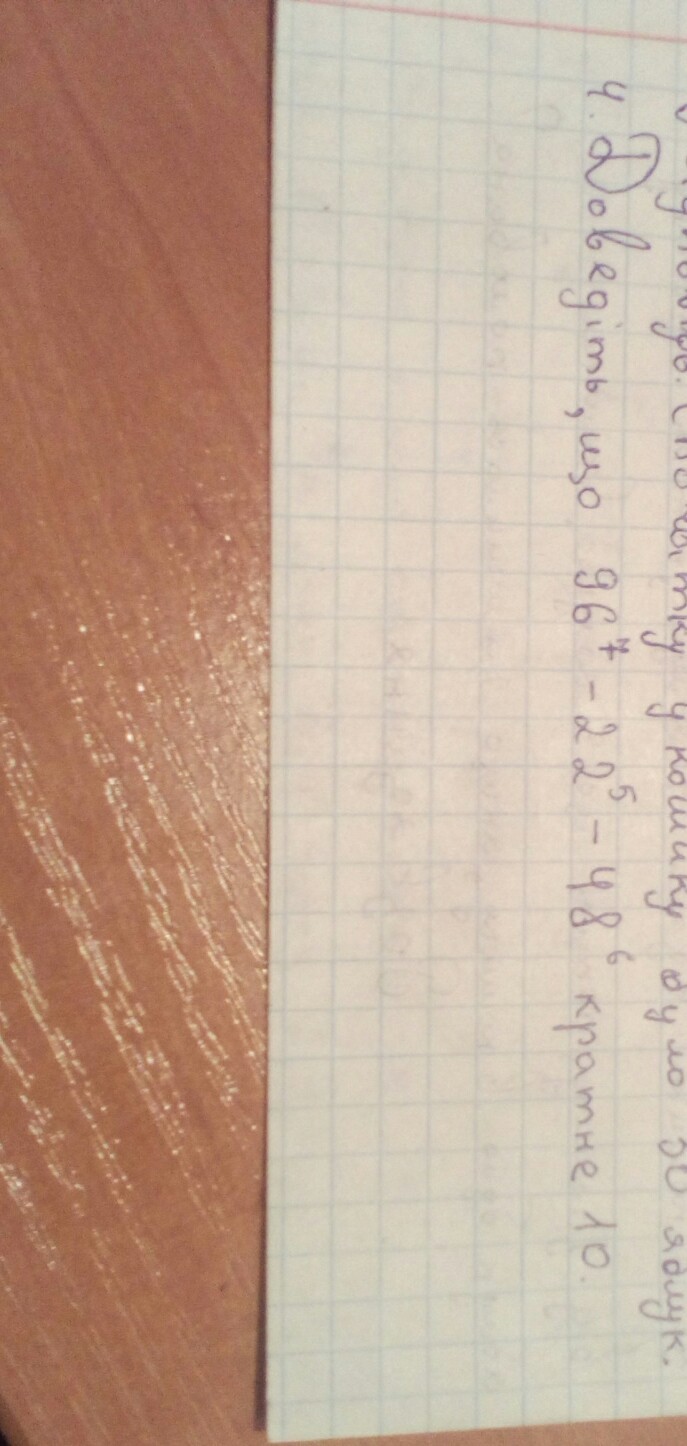 спочатку у кошику було 50 яблук.
4. Доведіть, що 96⁷ - 22⁵ - 48⁶ кратне 10.